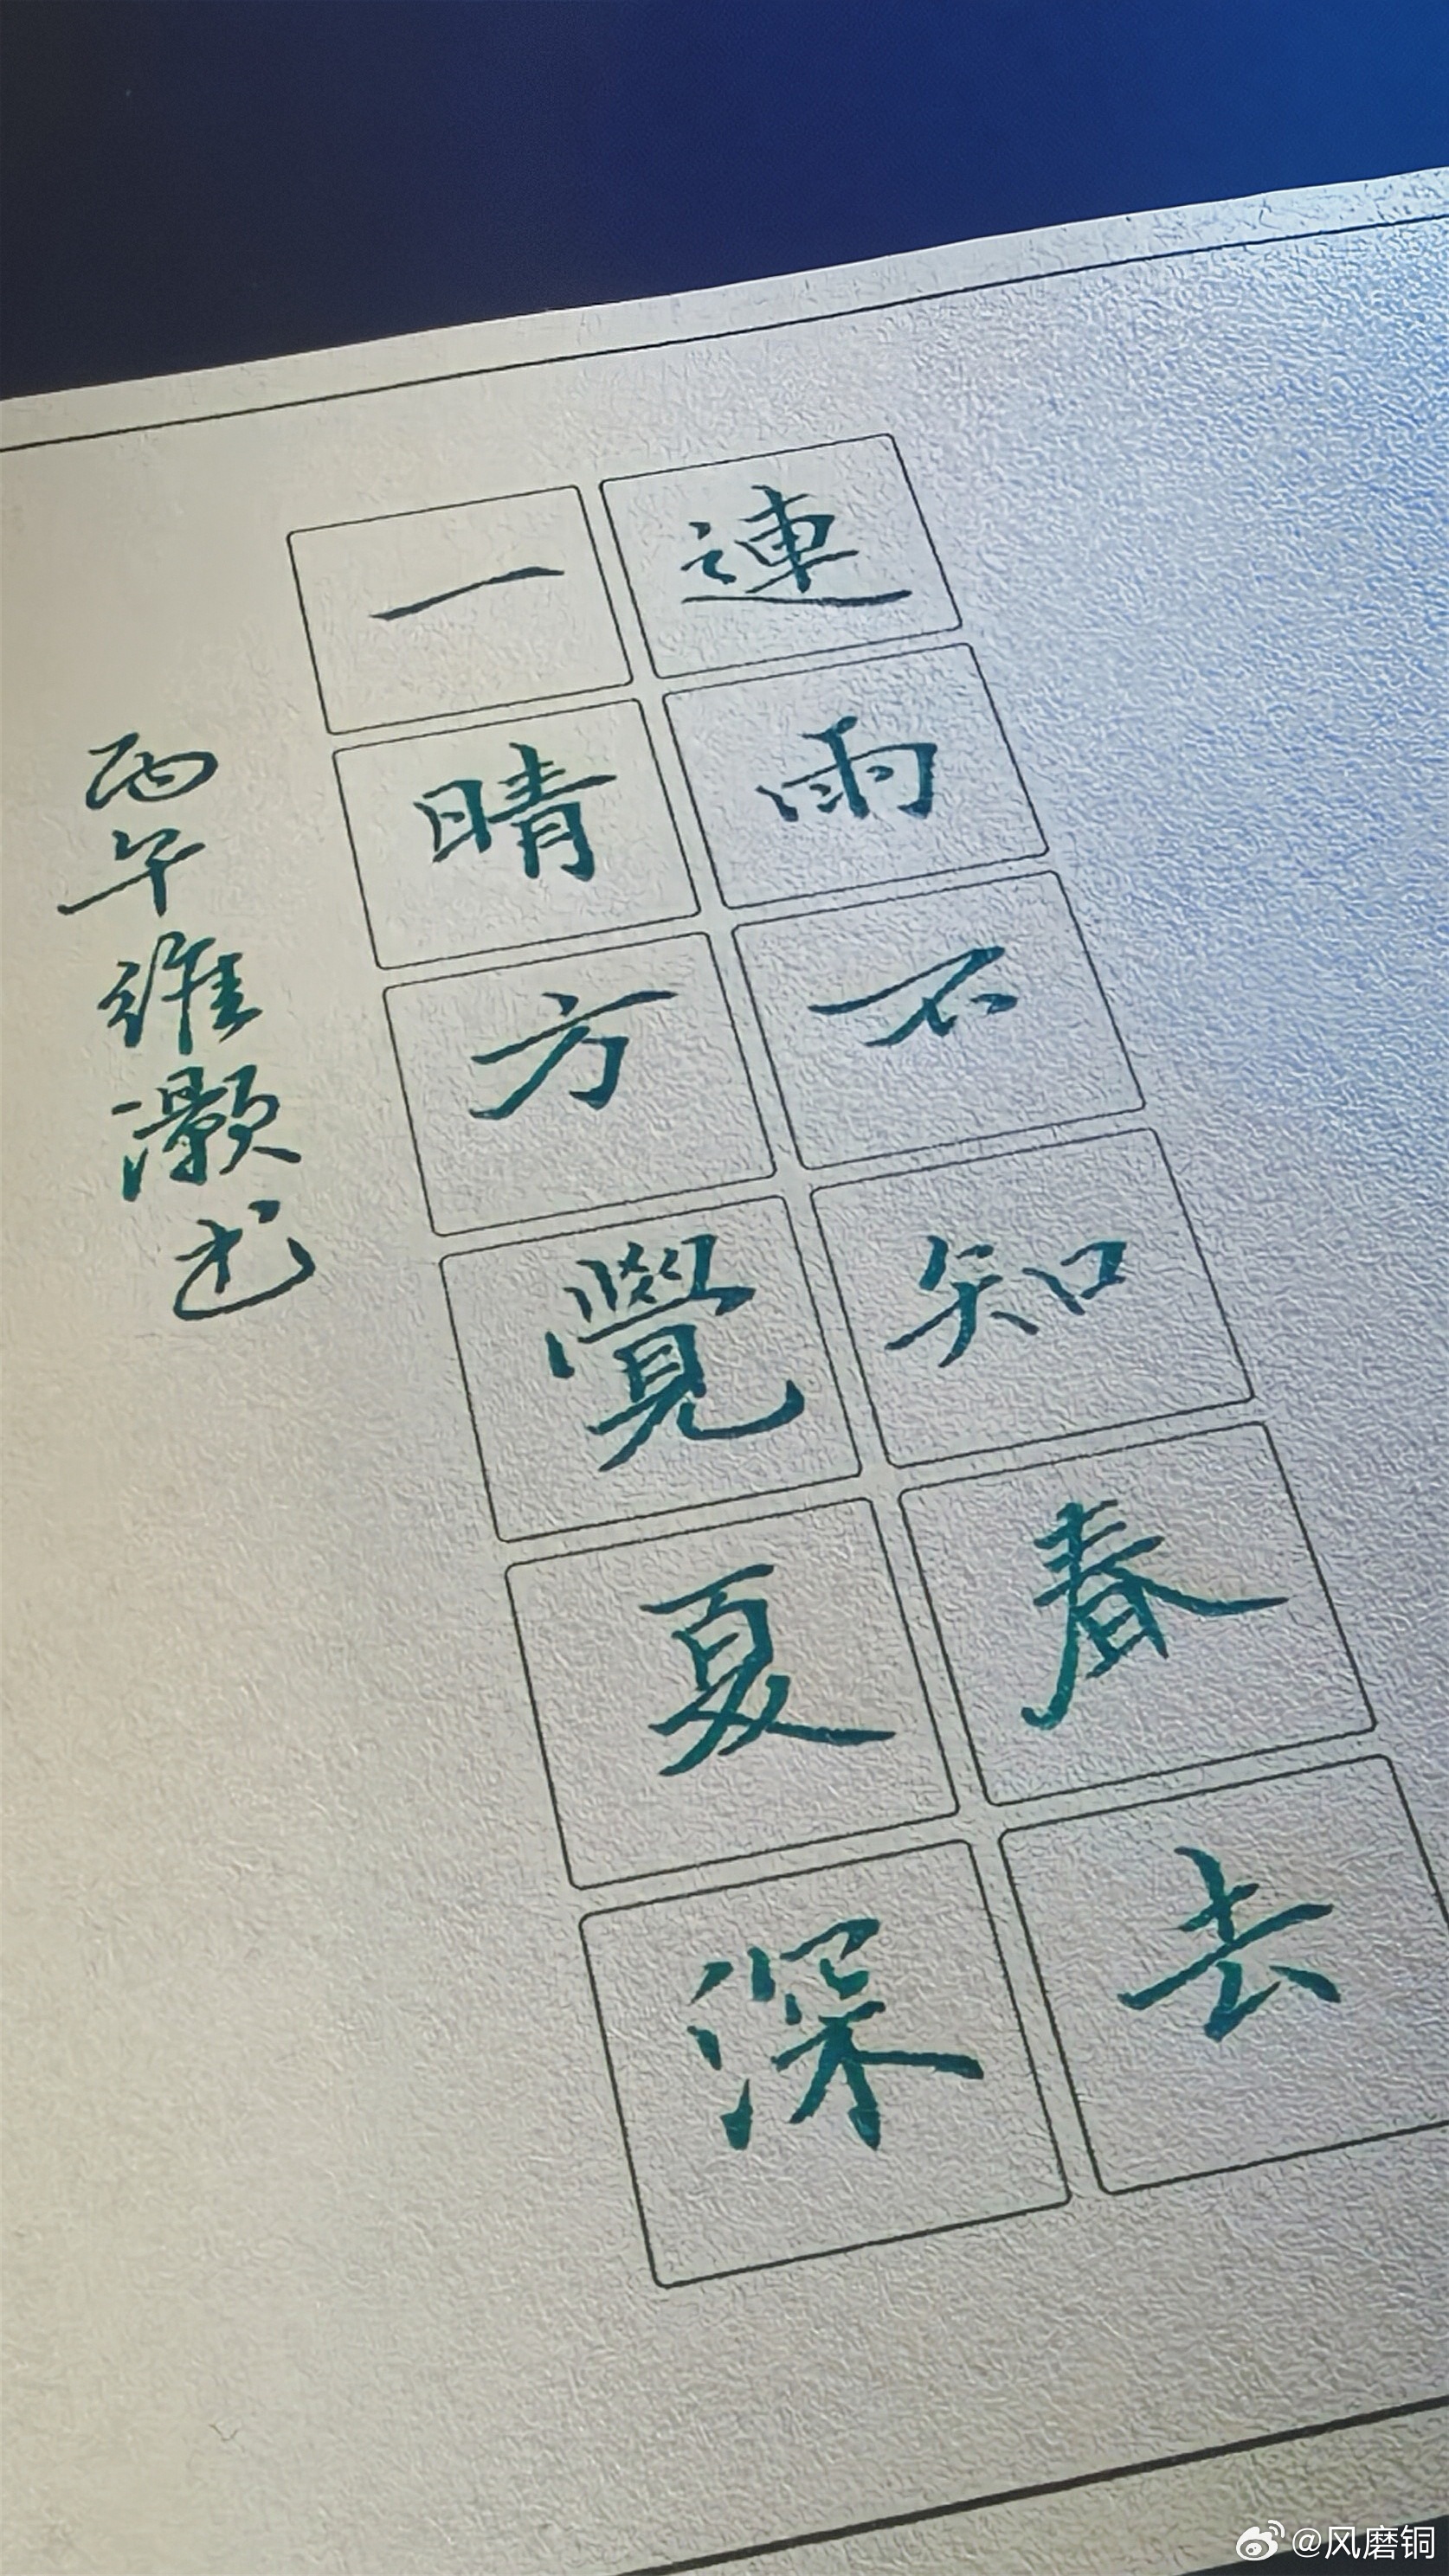 連雨不知春去
一晴方覺夏深
丙午維灝书
@风磨铜